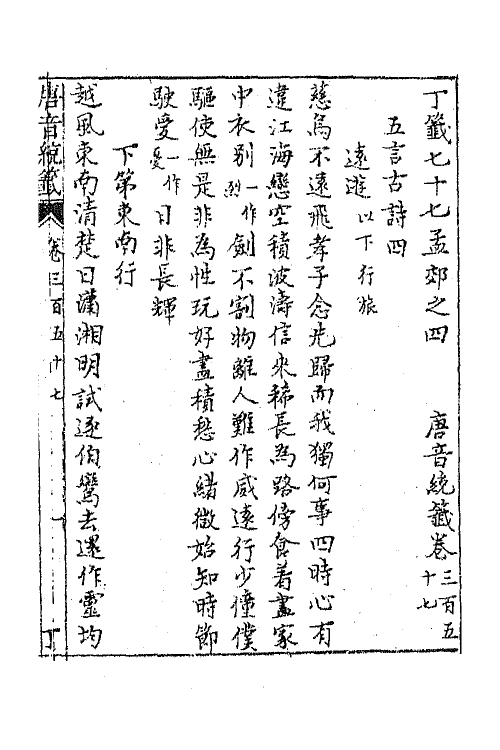 丁籤七十七孟郊之四　唐音統籤卷三百五十七
五言古詩四
遠遊以下行旅
慈烏不遠飛孝子念先歸而我獨何事四時心有
違江海戀空積波濤信來稀長為路傍食着盡家
中衣别一作烈劍不割物離人難作威遠行少僮僕
驅使無是非為性玩好盡積愁心緒微始知時節
駛愛一作憂日非長輝
下第東南行
越風東南清楚日瀟湘明試逐伯鸞去還作靈均
唐音統籤　卷三百五十七　一　丁